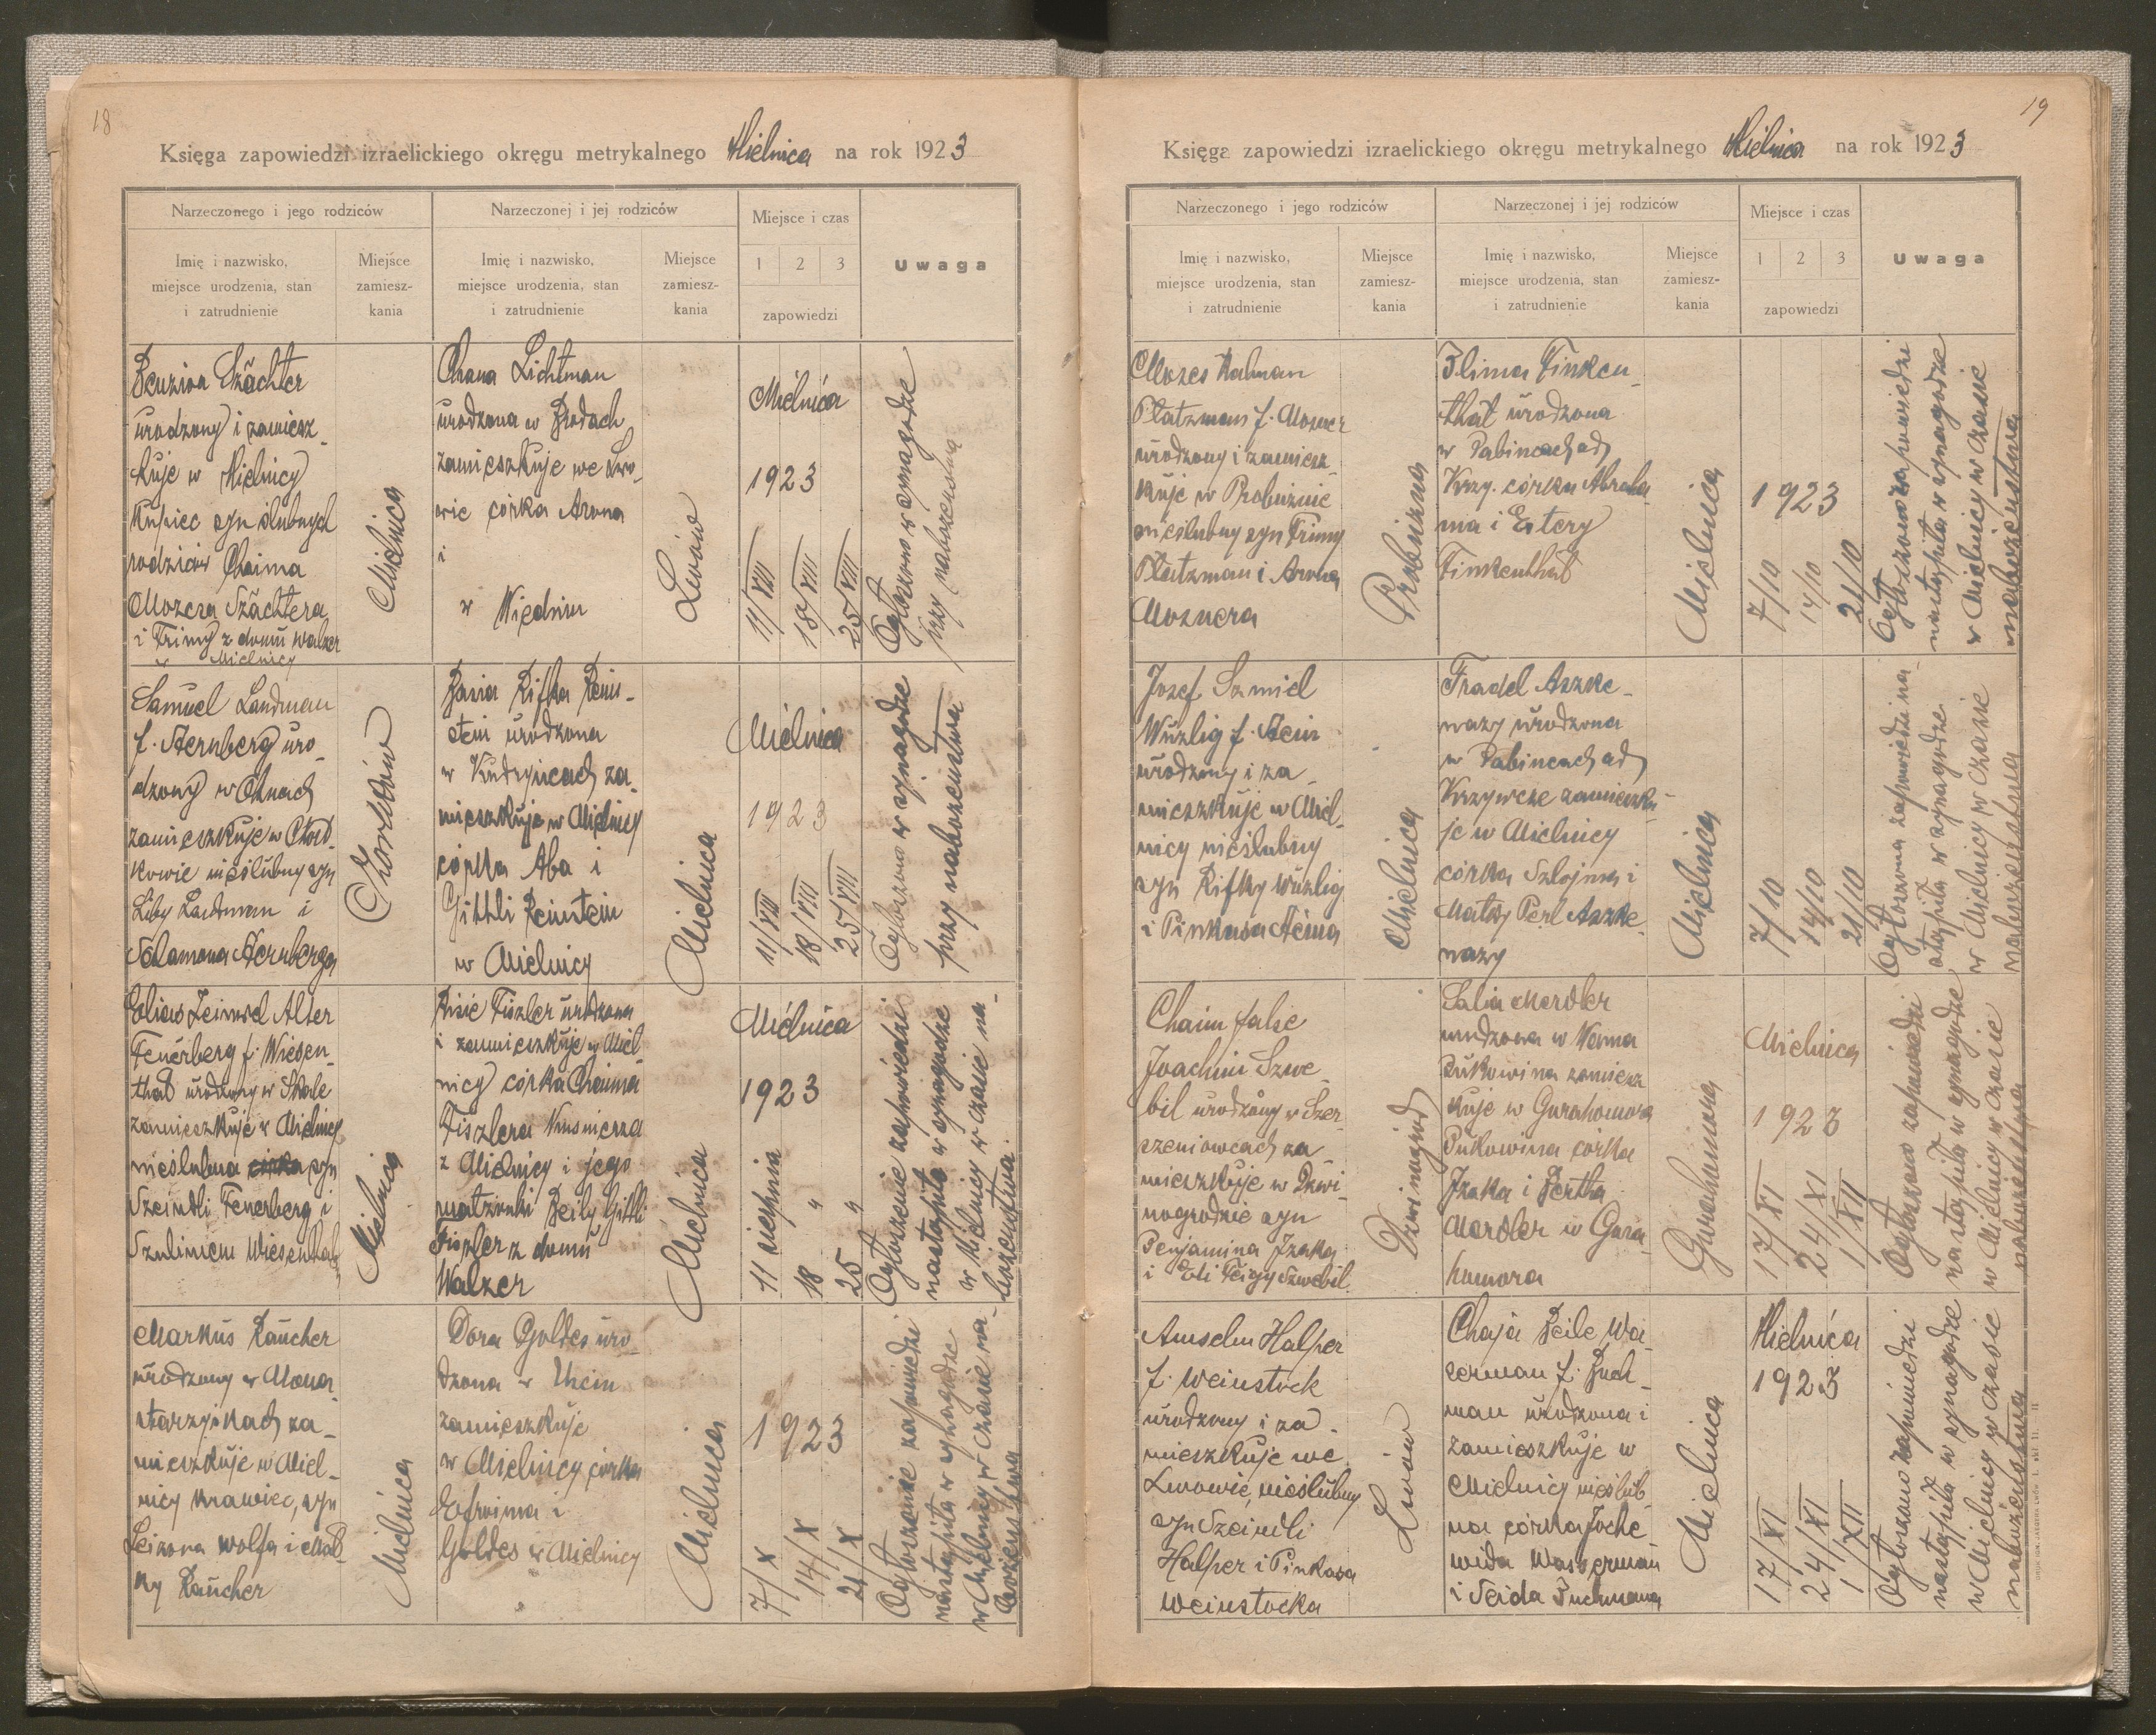 18
Księga zapowiedzi izraelickiego okręgu metrykalnego Mielnica na rok 1923
Narzeczonego i jego rodziców
Narzeczonej i jej rodziców
Miejsce i czas
Uwaga
Imię i nazwisko,
miejsce urodzenia, stan
i zatrudnienie
Miejsce
zamiesz-
kania
Imię i nazwisko,
miejsce urodzenia, stan
i zatrudnienie
Miejsce
zamiesz-
kania
1 2 3
zapowiedzi
Benzion Szächter
urodzony i zamiesz-
kuje w Mielnicy
Kupiec syn ślubnych
rodziców Chaima
Mozesa Szächtera
i Frimy z domu Walzer
w Mielnicy
Mielnica
Chana Lichtman
urodzona w Brodach
zamieszkuje we Lwo-
wie córka Arona
i
w Wiedniu
Lwów
Mielnica
1923
11/VIII
18/VIII
25/VIII
Ogłoszono w synagodze
przy nabożeństwie
Samuel Landman
f. Sternberg uro-
dzony w
zamieszkuje w Czort-
kowie nieślubny syn
Liby Landman i
Salamona Sternberga
Czortków
Basia Rifka Rein-
stein urodzona
w Kudryńcach za-
mieszkuje w Mielnicy
córka Aba i
Gittli Reinstein
w Mielnicy
Mielnica
Mielnica
1923
11/VIII
18/VIII
25/VIII
Ogłoszono w synagodze
przy nabożeństwie
Elias Leimel Alter
Feuerberg f. Wiesen-
thal urodzony w Skale
zamieszkuje w Mielnicy
nieślubna córka syn
Szeindli Feuerberg i
Szulimem Wiesenthal
Mielnica
Risie Fiszler urodzona
i zamieszkuje w Miel-
nicy córka Chaima
Fiszlera Kuśnierza
z Mielnicy i jego
małżonki Beily Gittli
Fiszler z domu
Walzer
Mielnica
Mielnica
1923
11 sierpnia
18 "
25 "
Ogłoszenie zapowiedzi
nastąpiło w synagodze
w Mielnicy w czasie na-
bożeństwa.
Markus Raucher
urodzony w Mona-
starzyskach za-
mieszkuje w Miel-
nicy Krawiec, syn
Leizora Wolfa i Mal-
ky Raucher
Mielnica
Dora Goldes uro-
dzona w
zamieszkuje
w Mielnicy córka
Efroima i
Goldes w Mielnicy
Mielnica
1923
7/X
14/X
21/X
Ogłoszenie zapowiedzi
nastąpiło w synagodze
w Mielnicy w czasie na-
bożeństwa
19
Księga zapowiedzi izraelickiego okręgu metrykalnego Mielnica na rok 1923
Narzeczonego i jego rodziców
Narzeczonej i jej rodziców
Miejsce i czas
Uwaga
Imię i nazwisko,
miejsce urodzenia, stan
i zatrudnienie
Miejsce
zamiesz-
kania
Imię i nazwisko,
miejsce urodzenia, stan
i zatrudnienie
Miejsce
zamiesz-
kania
1 2 3
zapowiedzi
Mozes Kalman
Platzman f. Mozner
urodzony i zamiesz-
kuje w Probużnie
nieślubny syn Frimy
Platzman i Arona
Moznera
Probużna
Slima Finken-
thal urodzona
w Babincach ad
Krzy. córka Abraha
ma i Estery
Finkenthal
Mielnica
1923
7/10
14/10
21/10
Ogłoszono zapowiedzi
nastąpiła w synagodze
w Mielnicy w czasie
nabożeństwa
Jozef Szmiel
Wurzlig f. Stein
urodzony i za-
mieszkuje w Miel-
nicy nieślubny
syn Rifky Wurzlig
i Pinkasa Steina
Mielnica
Fradel Aszke-
nazy urodzona
w Babincach ad
Krzywcze zamieszku-
je w Mielnicy
córka Szlojma i
Matky Perl Aszke-
nazy
Mielnica
7/10
14/10
21/10
Ogłoszono zapowiedzi na-
stąpiła w synagodze
w Mielnicy w czasie
nabożeństwa
Chaim false
Joachim Szwe-
bil urodzony w Szer-
szeniowcach za-
mieszkuje w Dźwi-
nogrodzie syn
Benjamina Izaka
i Eli Feigy Szwebil
Dźwinogród
Salia Mardler
urodzona w
Bukowina zamiesz
kuje w Gurahomora
Bukowina córka
Izaka i Bertha
Mardler w Gura-
humora
Gurahumora
Mielnica
1923
17/XI
24/XI
1/XII
Ogłoszono zapowiedzi
nastąpiła w synagodze
w Mielnicy w czasie
nabożeństwa
Amselm Halper
f. Weinstock
urodzony i za-
mieszkuje we
Lwowie, nieślubny
syn Szeindli
Halper i Pinkasa
Weinstocka
Lwów
Chaja Beile Wa-
serman f. Buch-
man urodzona i
zamieszkuje w
Mielnicy nieślub-
na córka Joche-
wida Wasserman
i Seida Buchmana
Mielnica
Mielnica
1923
17/XI
24/XI
1/XII
Ogłoszono zapowiedzi
nastąpiła w synagodze
w Mielnicy w czasie
nabożeństwa